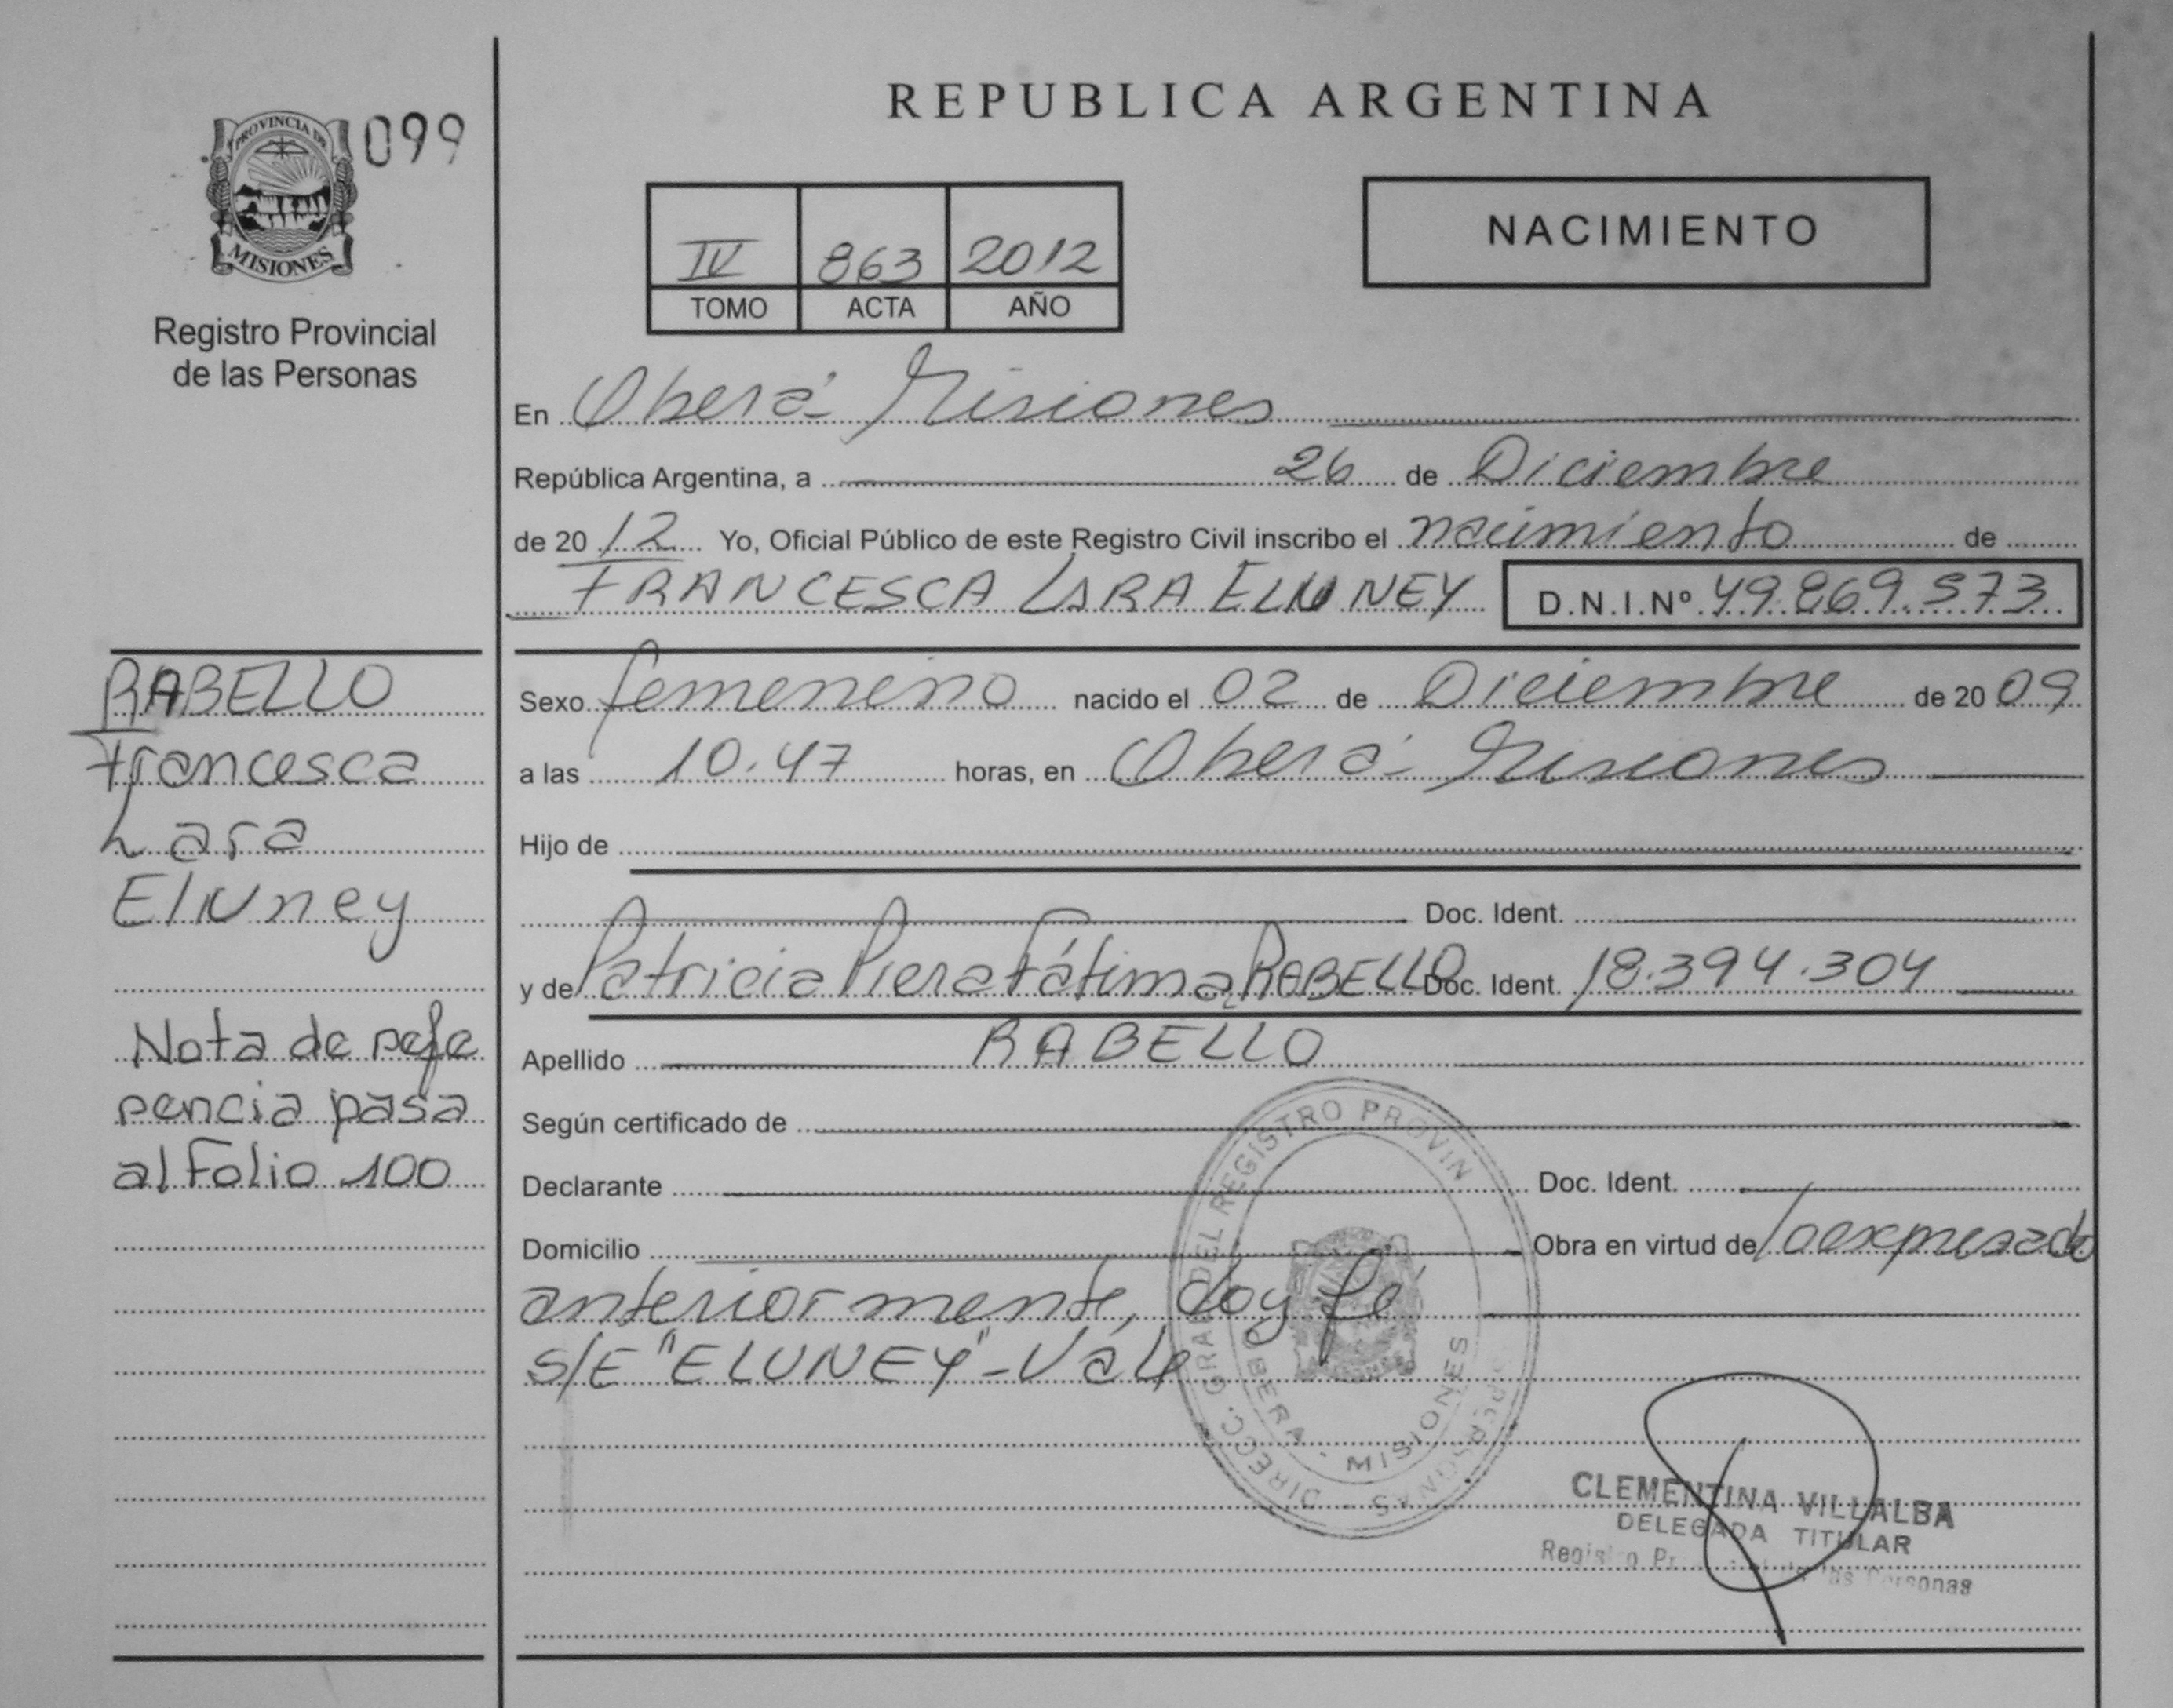 PROVINCIA DE
MISIONES
099
Registro Provincial
de las Personas
REPUBLICA ARGENTINA
IV 863 2012
TOMO ACTA AÑO
NACIMIENTO
En Oberá Misiones
República Argentina, a 26 de Diciembre
de 2012 Yo, Oficial Público de este Registro Civil inscribo el nacimiento de
FRANCESCA LARA ELUNEY D.N.I.Nº 49.869.573
RABELLO
Francesca
Lara
Eluney
Nota de refe
rencia pasa
al Folio 100
Sexo femenino nacido el 02 de Diciembre de 2009
a las 10.47 horas, en Oberá Misiones
Hijo de
Doc. Ident.
y de Patricia Piera Fátima RABELLO Doc. Ident. 18.394.304
Apellido RABELLO
Según certificado de
Declarante Doc. Ident.
Domicilio Obra en virtud de lo expresado
anteriormente, doy fé
S/E "ELUNEY" - Vale
DIRECC. GRAL DEL REGISTRO PROVIN PERSONAS
OBERA - MISIONES
CLEMENTINA VILLALBA
DELEGADA TITULAR
Registro las Personas